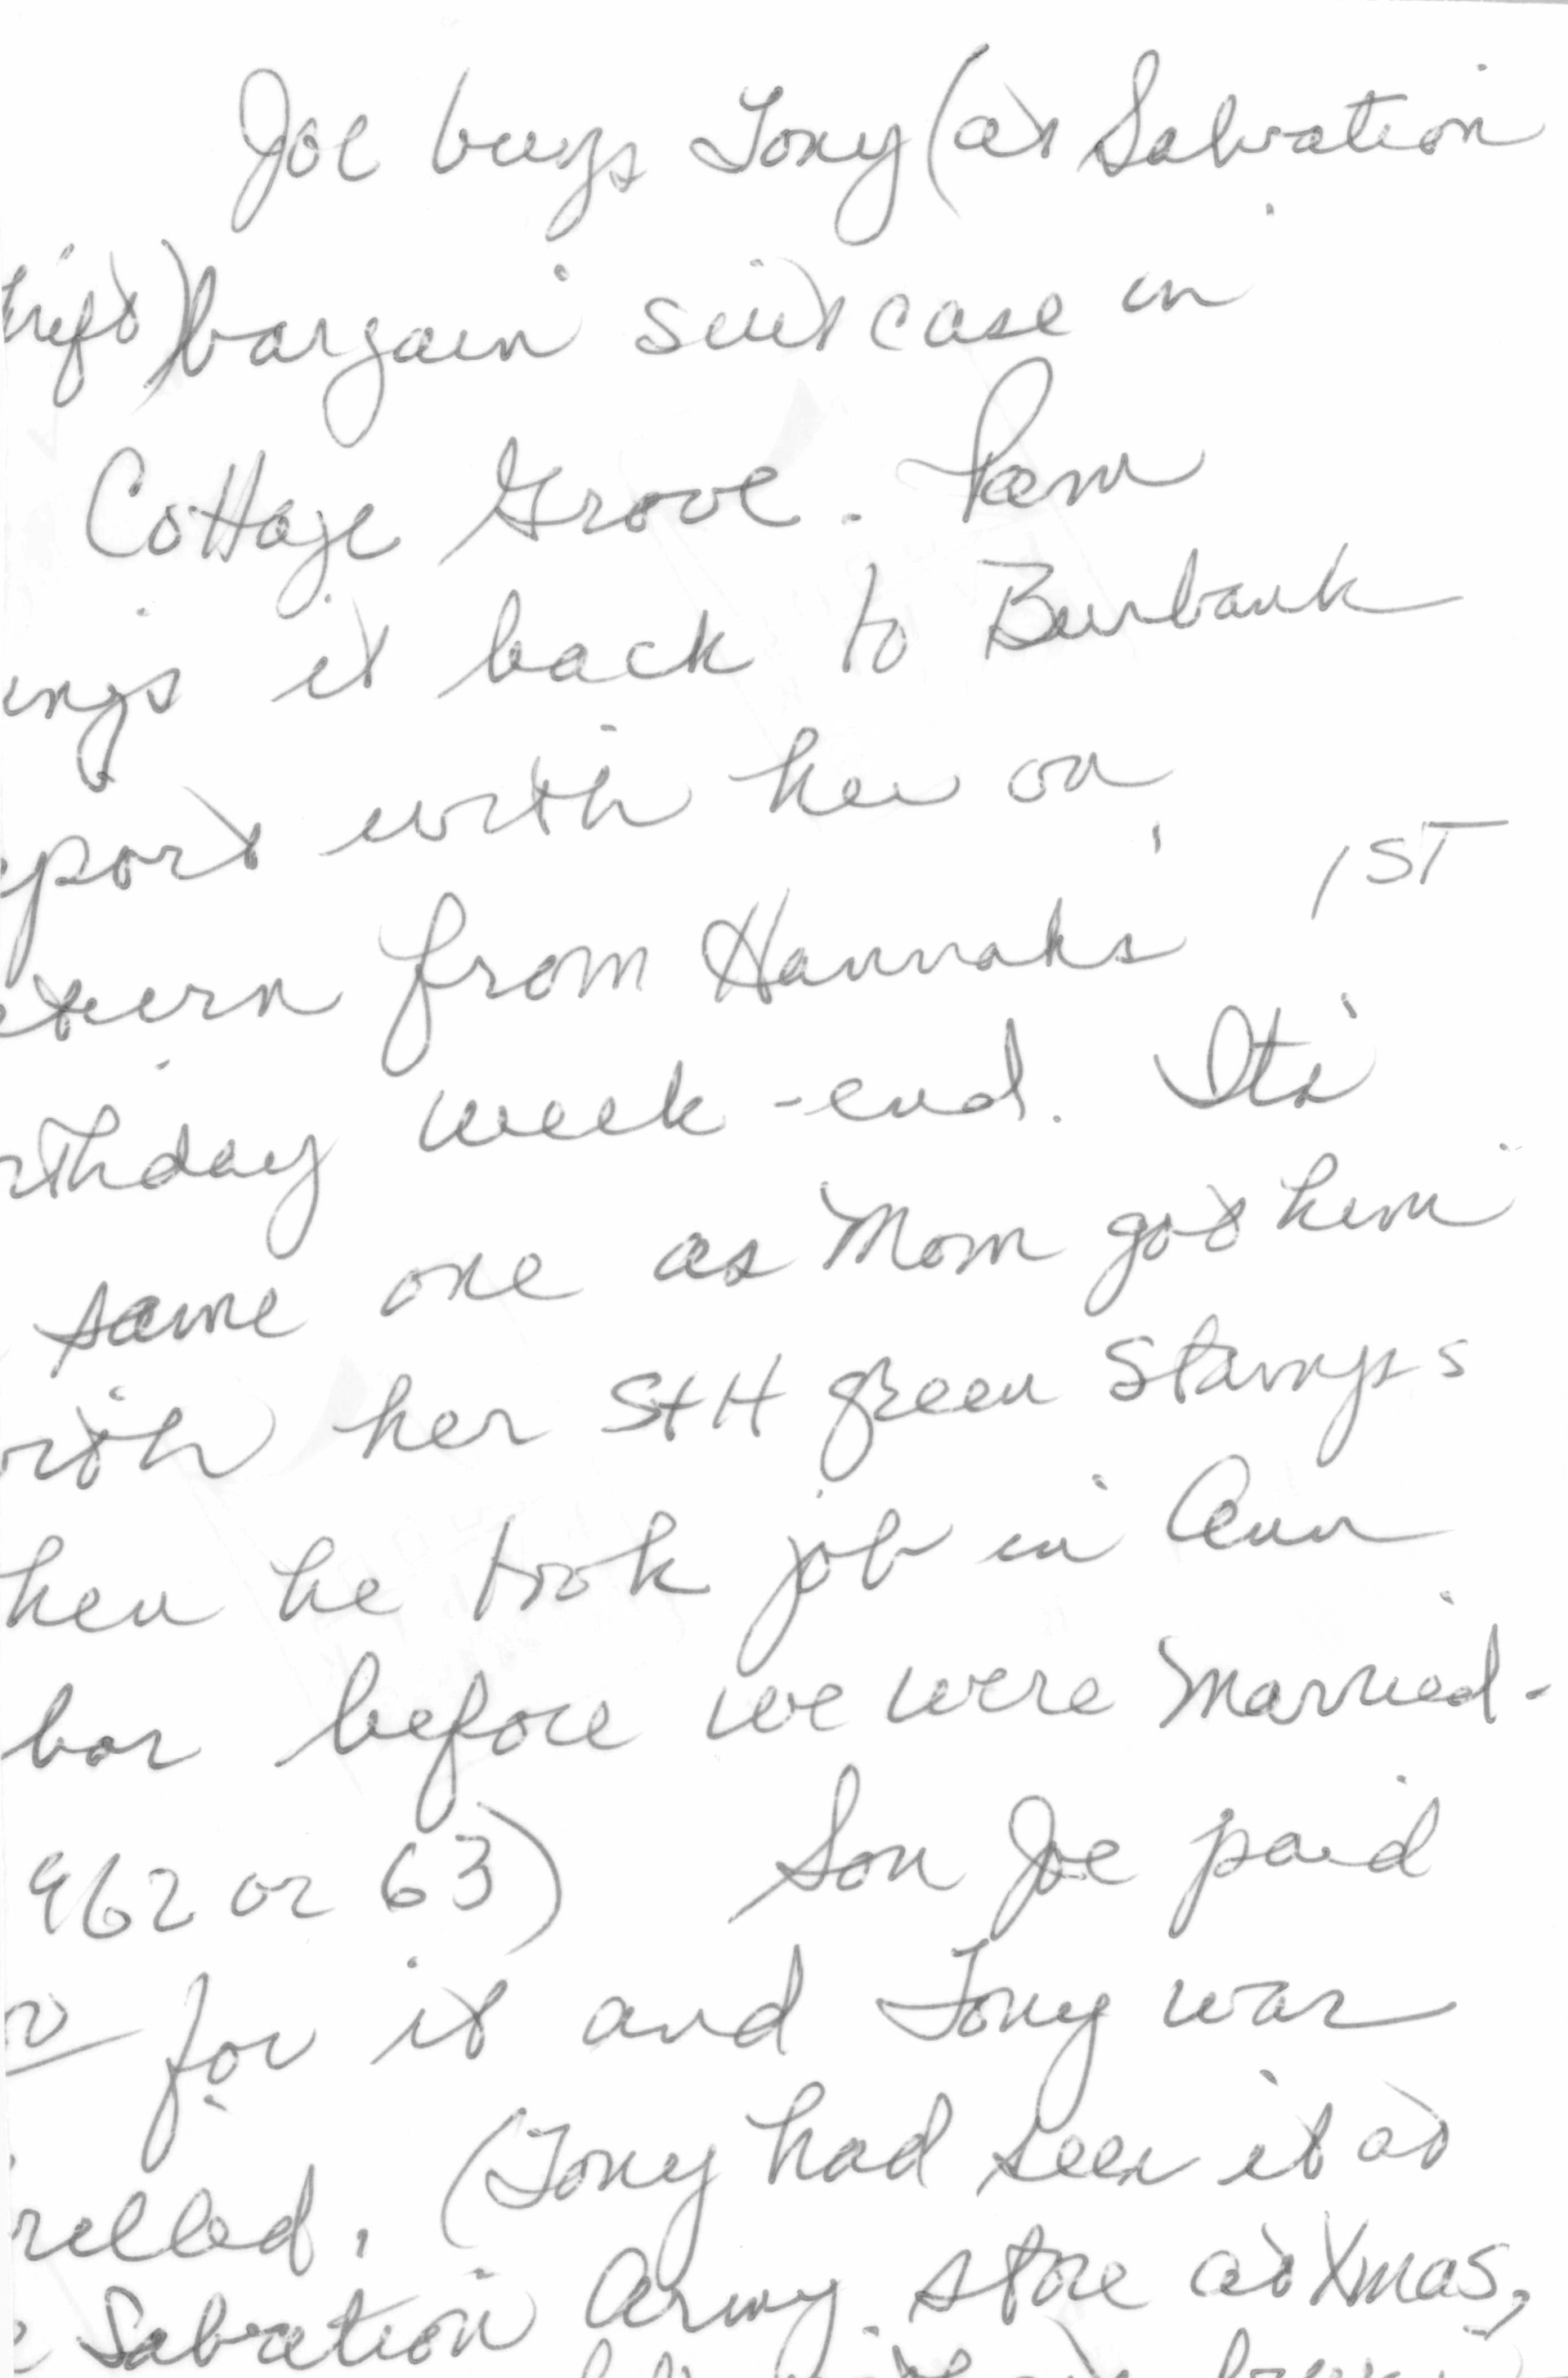 Joe buys Tony (at Salvation
hrift) bargain suitcase in
Cottage Grove. Pam
ings it back to Burbank
port with her on
eturn from Hannah's 1ST
rthday week-end. It's
same one as Mom got him
with her S+H green Stamps
hen he took job in Ann
bor before we were married-
962 or 63) Son Joe paid
for it and Tony was
rilled. (Tony had seen it at
e Salvation Army store at Xmas,